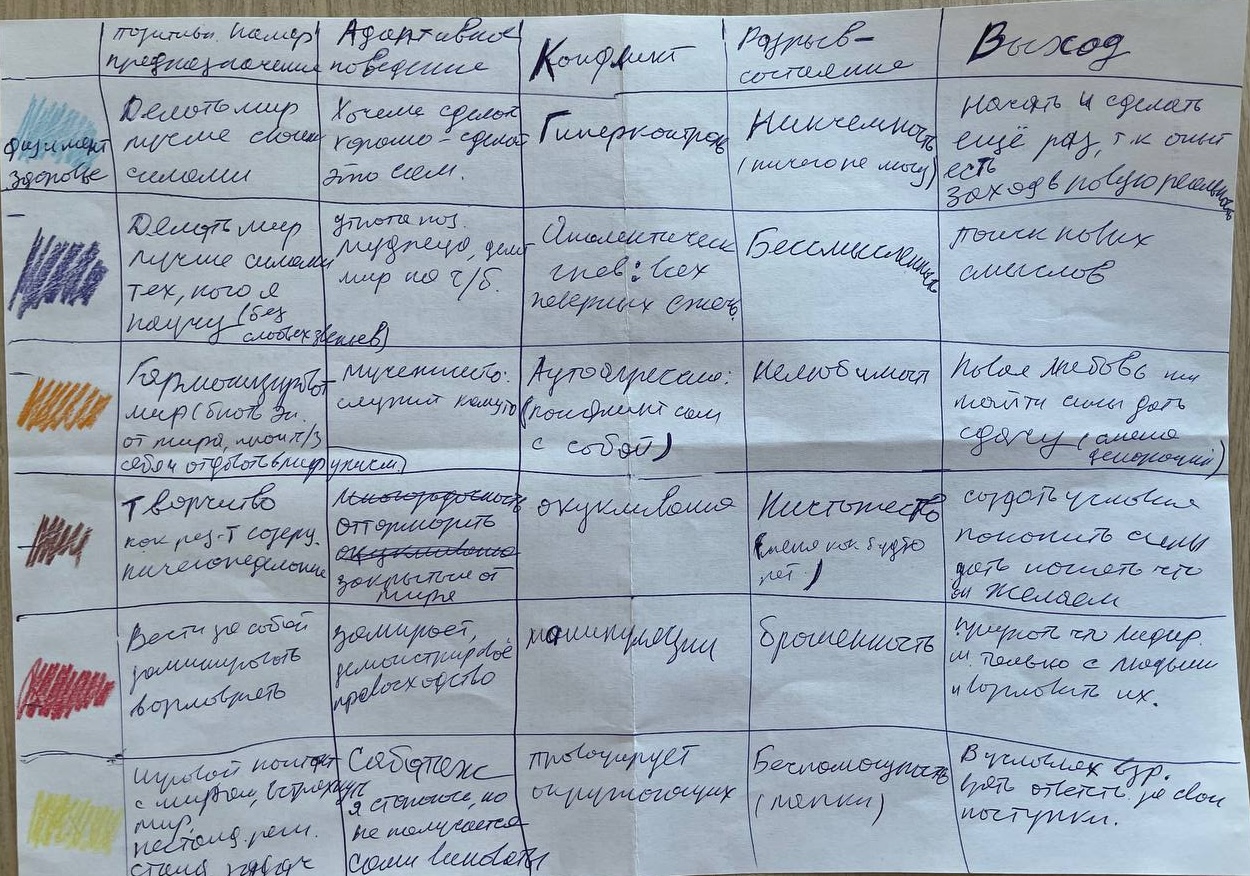 позитивн. намер
предназначение
Адаптивное
поведение
Конфликт
Разрыв-
состояние
Выход
фундамент
здоровье
Делать мир
лучше своими
силами
Хочешь сделать
хорошо - сделай
это сам.
Гиперконтроль
Никчемность
(ничего не могу)
Начать и сделать
ещё раз, т к опыт
есть
заход в новую реальность
Делать мир
лучше силами
тех, кого я
научу (без
слабых звеньев)
мудреца, делит
мир на ч/б.
гнев: всех
неверных сжечь
Бессмысленность
поиск новых
смыслов
Гармонизировать
мир (брать эн.
от мира, через
себя и отдавать в мир
мученичество:
служит кому то
Аутоагрессия:
(конфликт сам
с собой)
Нелюбимость
Новая любовь или
найти силы дать
сдачу (смена
декораций)
Творчество
как рез-т созерц.
ничегонеделание
отгородить
закрыться от
мира
окукливание
Ничтожество
(меня как будто
нет.)
создать условия
накопить силы
дать понять что
он желаем
Вести за собой
доминировать
вдохновлять
замирает,
демонстрирует
превосходство
манипуляции
брошенность
признать что лидер
м. только с людьми
и вдохновить их.
Игровой контакт
с миром, встряхнуть
мир.
Саботаж
я стараюсь, но
не получается
сами виноваты
провоцирует
окружающих
Беспомощность
(лапки)
В условиях взр.
взять ответств. за свои
поступки.